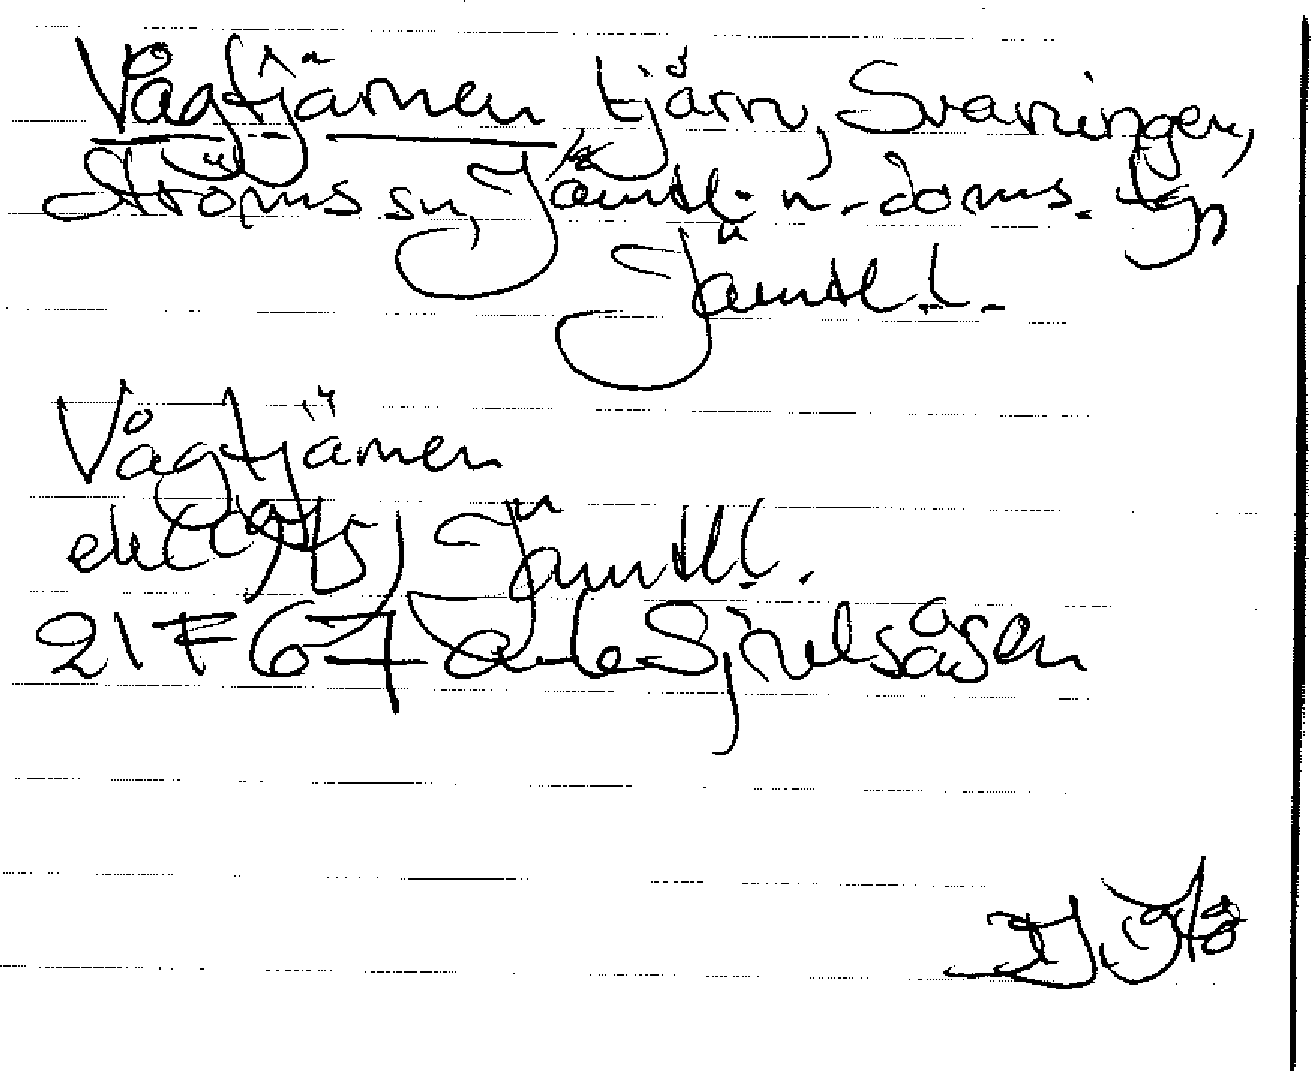 Vågtjärnen tjärn, Svaningen,
Ströms sn, Jämtl. n. doms. tg,
Jämtl. l.
Vågtjärnen
ek
Jämtl l.
21F 67 d-e Sjulsåsen